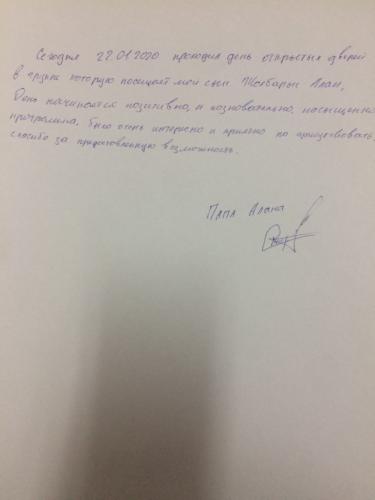 Сегодня 22.01.2020 проходил день открытых дверей
в группе которую посещает мой сын Алан,
День начинается позитивно, и познавательно, насыщенно
программа, было очень интересно и приятно по присутствовать,
спасибо за предоставленную возможность.
Папа Алана